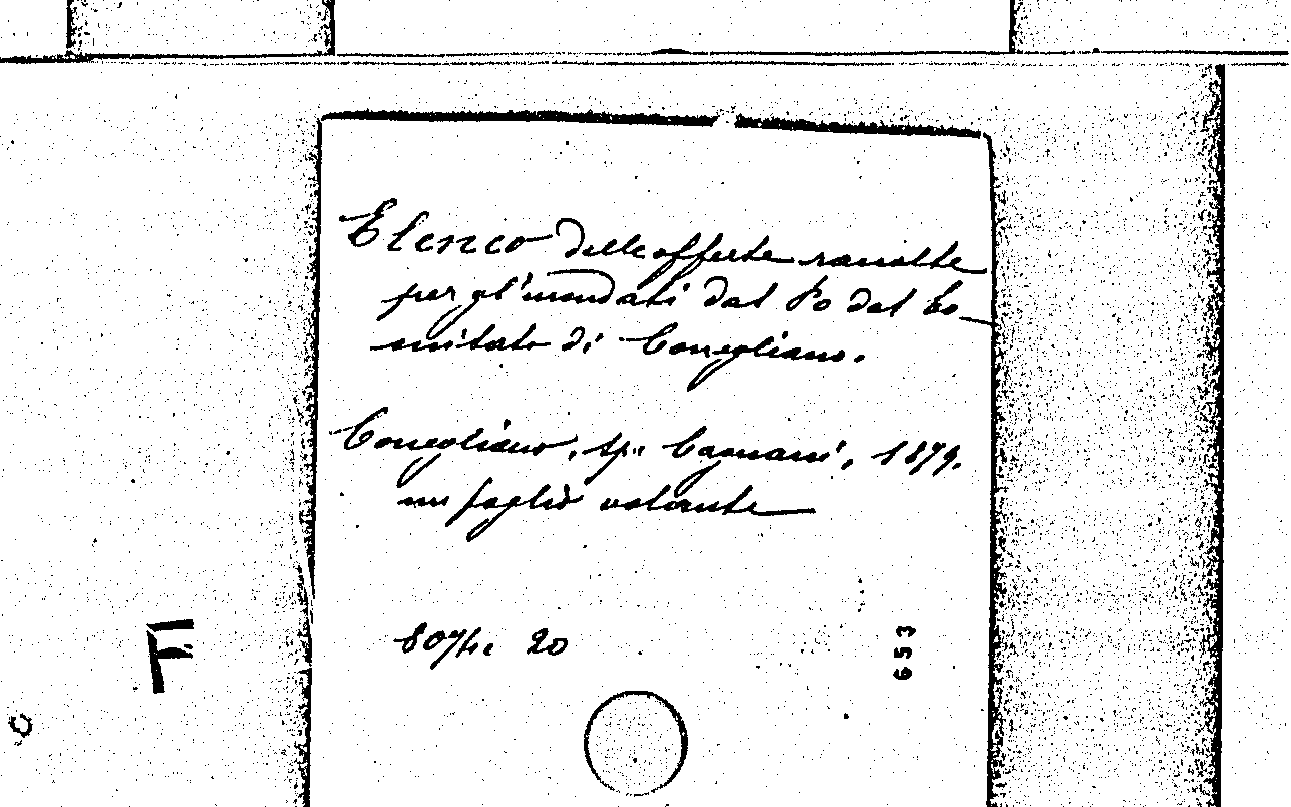 Elenco delle offerte raccolte
per gl'inondati dal Po dal Co-
mitato di Conegliano.
Conegliano, tip. Cagnani, 1879.
un foglio volante
20
653
F